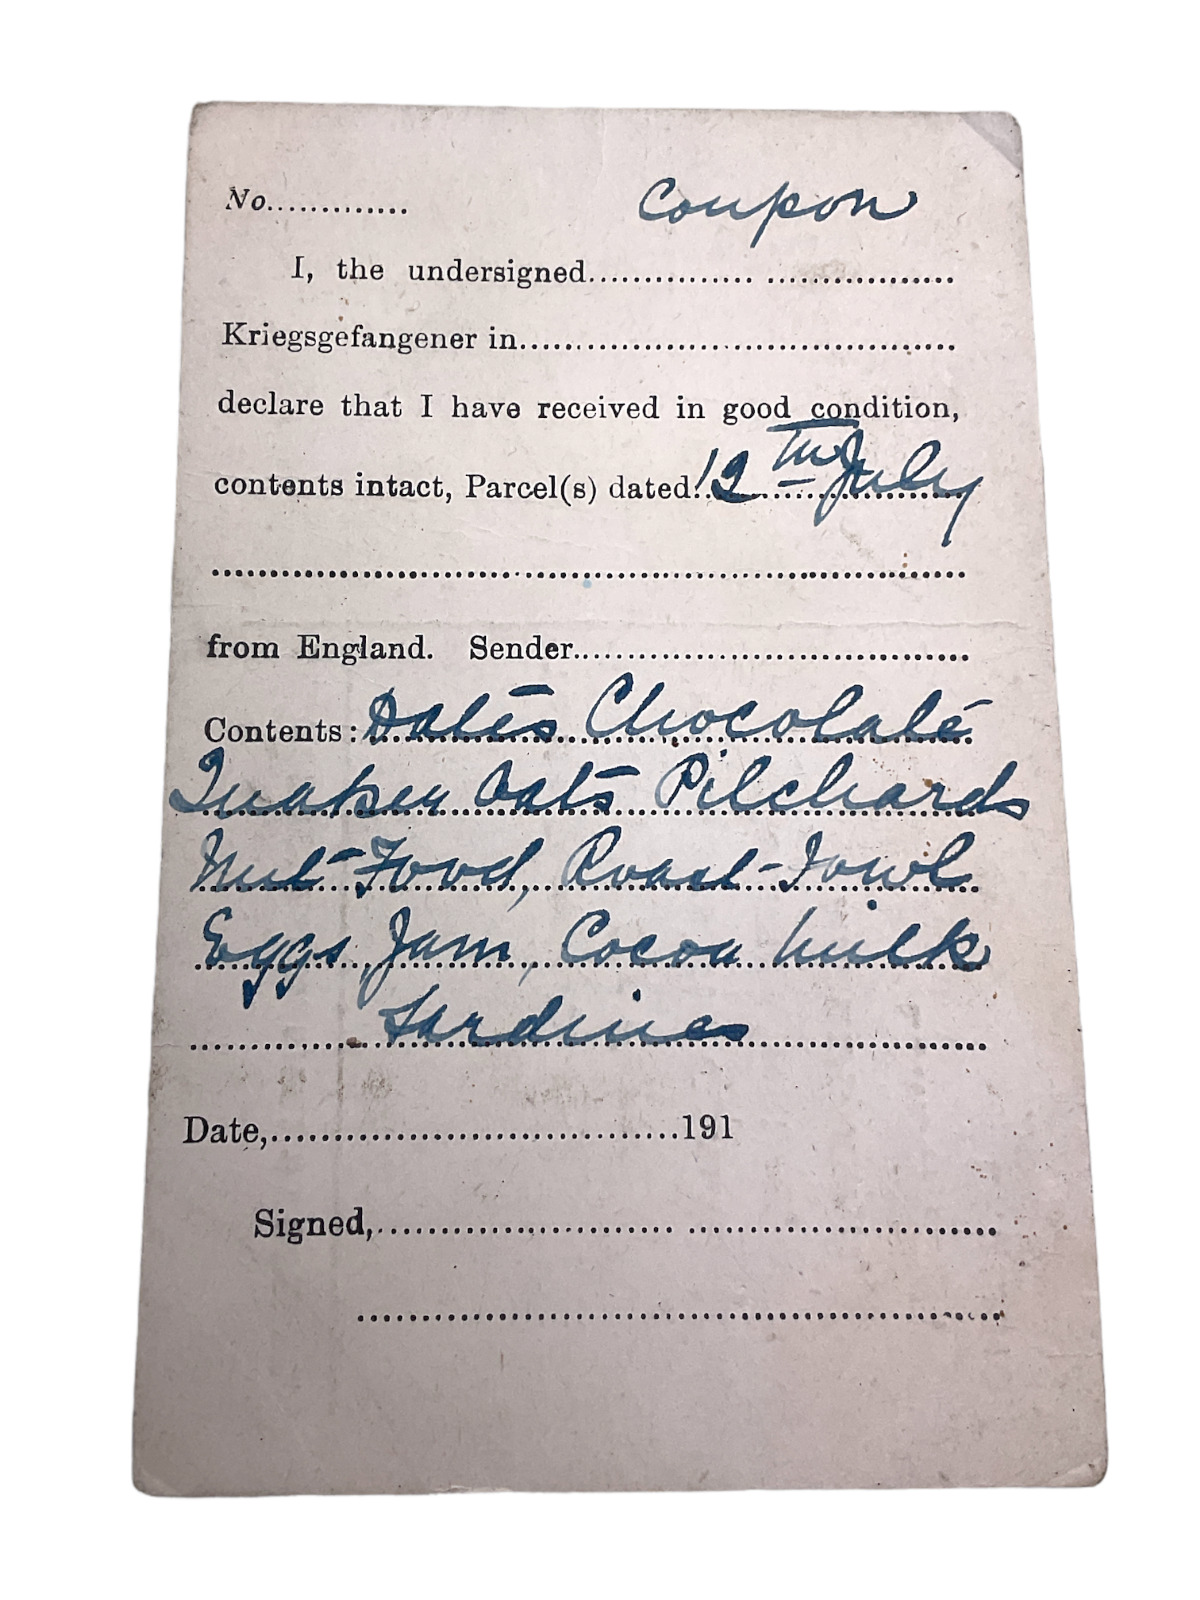 No............. Coupon
I, the undersigned...............................
Kriegsgefangener in.......................................
declare that I have received in good condition,
contents intact, Parcel(s) dated 12th July
....................................................................
from England. Sender...................................
Contents: Dates Chocolate
Quaker Oats Pilchards
Nut Food, Roast Fowl
Eggs, Jam, Cocoa Milk
Sardines
Date,.................................191
Signed,..................................................
....................................................